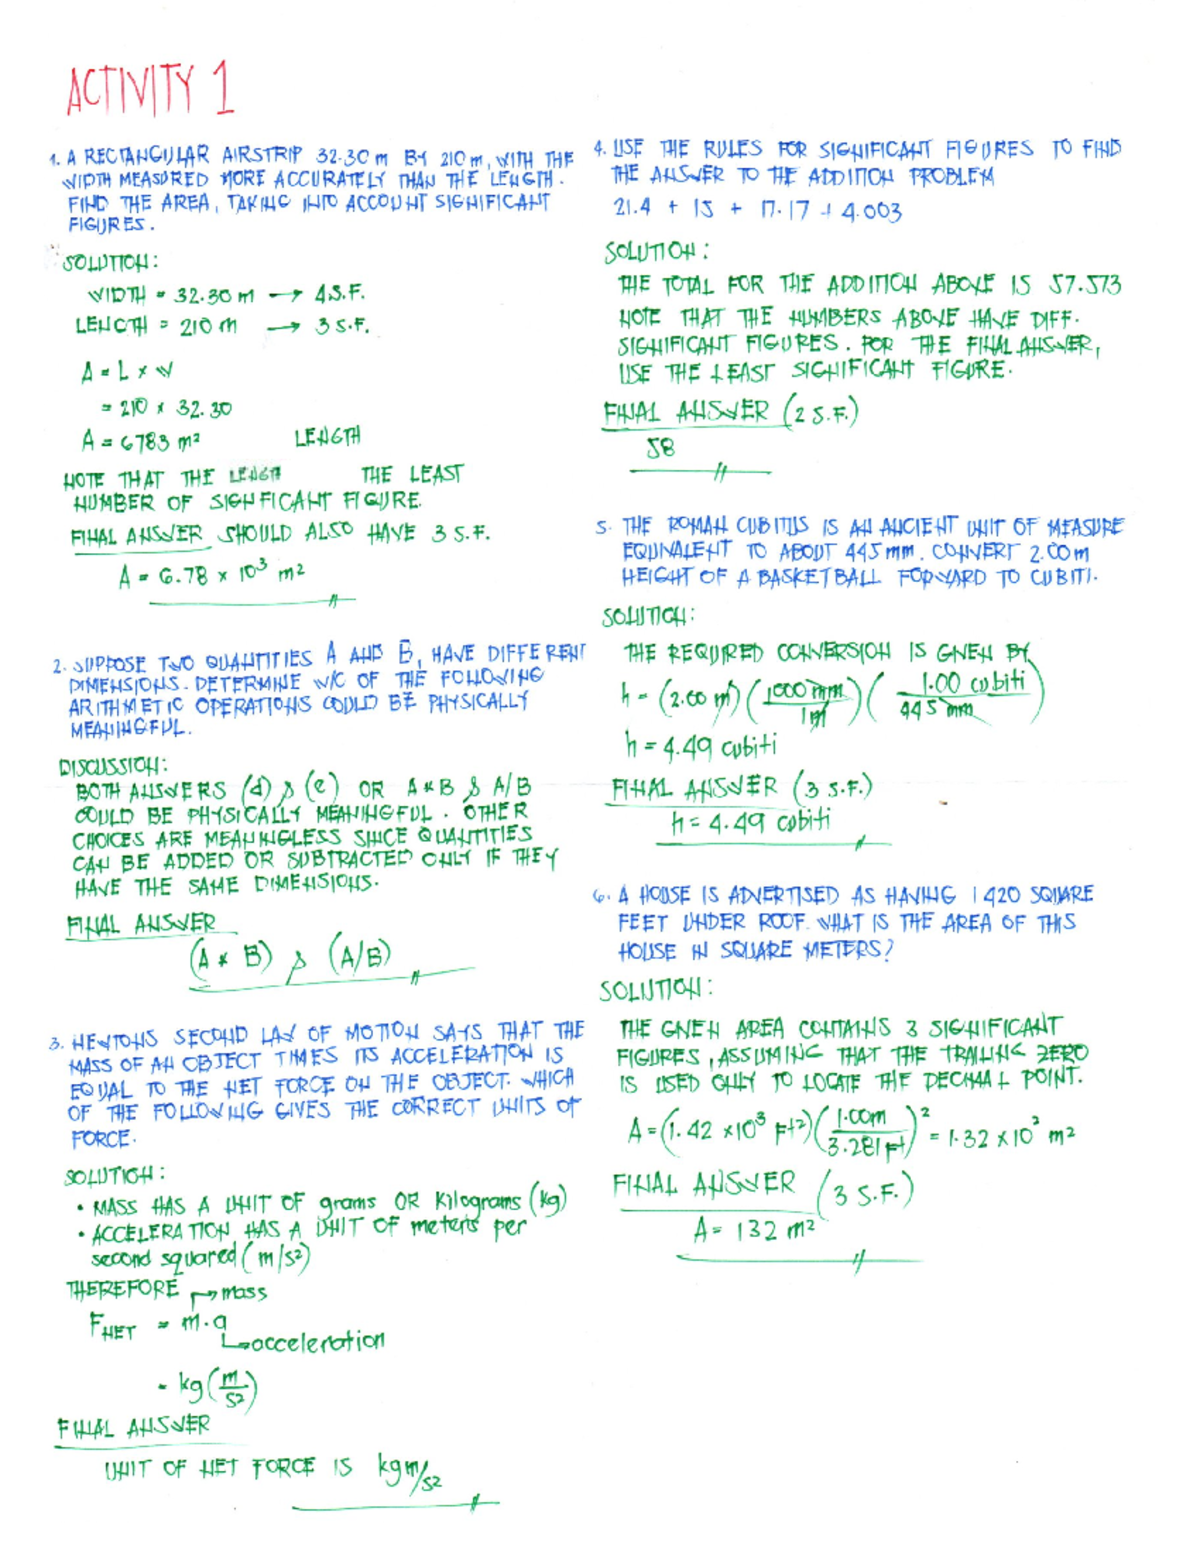 ACTIVITY 1
1. A RECTANGULAR AIRSTRIP 32.30 m BY 210 m, WITH THE
WIDTH MEASURED MORE ACCURATELY THAN THE LENGTH.
FIND THE AREA, TAKING INTO ACCOUNT SIGNIFICANT
FIGURES.
SOLUTION:
WIDTH = 32.30 m → 4 S.F.
LENGTH = 210 m → 3 S.F.
A = L x W
= 210 x 32.30
A = 6783 m²
LENGTH
NOTE THAT THE LENGTH THE LEAST
NUMBER OF SIGNFICANT FIGURE.
FINAL ANSWER SHOULD ALSO HAVE 3 S.F.
A = 6.78 x 10³ m²
2. SUPPOSE TWO QUANTITIES A AND B, HAVE DIFFERENT
DIMENSIONS. DETERMINE W/C OF THE FOLLOWING
ARITHMETIC OPERATIONS COULD BE PHYSICALLY
MEANINGFUL.
DISCUSSION:
BOTH ANSWERS (d) & (e) OR A*B & A/B
COULD BE PHYSICALLY MEANINGFUL. OTHER
CHOICES ARE MEANINGLESS SINCE QUANTITIES
CAN BE ADDED OR SUBTRACTED ONLY IF THEY
HAVE THE SAME DIMENSIONS.
FINAL ANSWER
(A * B) & (A/B)
3. NEWTONS SECOND LAW OF MOTION SAYS THAT THE
MASS OF AN OBJECT TIMES ITS ACCELERATION IS
EQUAL TO THE NET FORCE ON THE OBJECT. WHICH
OF THE FOLLOWING GIVES THE CORRECT UNITS OF
FORCE.
SOLUTION:
• MASS HAS A UNIT OF grams OR Kilograms (kg)
• ACCELERATION HAS A UNIT OF meters per
second squared (m/s²)
THEREFORE → mass
F NET = m·a
→ acceleration
= kg (m/s²)
FINAL ANSWER
UNIT OF NET FORCE IS kgm/s²
4. USE THE RULES FOR SIGNIFICANT FIGURES TO FIND
THE ANSWER TO THE ADDITION PROBLEM
21.4 + 15 + 17.17 + 4.003
SOLUTION:
THE TOTAL FOR THE ADDITION ABOVE IS 57.573
NOTE THAT THE NUMBERS ABOVE HAVE DIFF.
SIGNIFICANT FIGURES. FOR THE FINAL ANSWER,
USE THE LEAST SIGNIFICANT FIGURE.
FINAL ANSWER (2 S.F.)
58
5. THE ROMAN CUBITUS IS AN ANCIENT UNIT OF MEASURE
EQUIVALENT TO ABOUT 445 mm. CONVERT 2.00m
HEIGHT OF A BASKETBALL FORWARD TO CUBITI.
SOLUTION:
THE REQUIRED CONVERSION IS GIVEN BY
h = (2.00 m) (1000 mm / 1 m) (1.00 cubiti / 445 mm)
h = 4.49 cubiti
FINAL ANSWER (3 S.F.)
h = 4.49 cubiti
6. A HOUSE IS ADVERTISED AS HAVING 1 420 SQUARE
FEET UNDER ROOF. WHAT IS THE AREA OF THIS
HOUSE IN SQUARE METERS?
SOLUTION:
THE GIVEN AREA CONTAINS 3 SIGNIFICANT
FIGURES, ASSUMING THAT THE TRAILING ZERO
IS USED ONLY TO LOCATE THE DECIMAL POINT.
A = (1.42 x10³ Ft²) (1.00m / 3.281 Ft)² = 1.32 x 10² m²
FINAL ANSWER (3 S.F.)
A = 132 m²